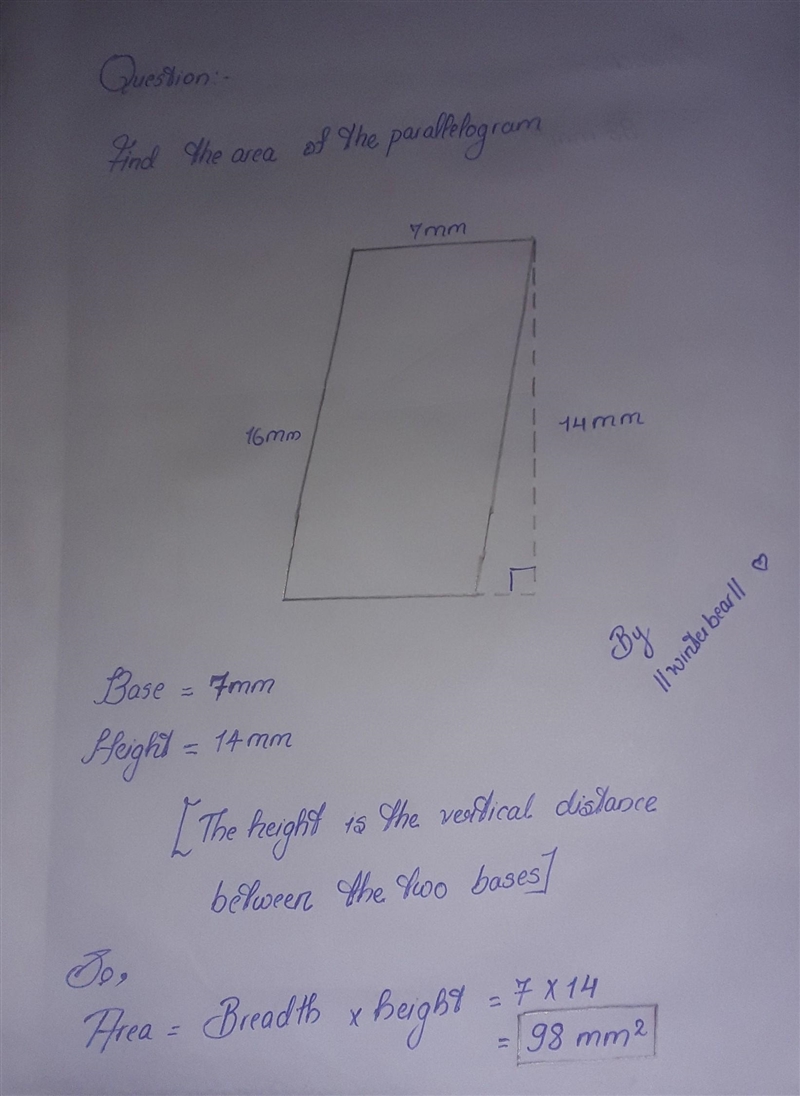 Question:-
Find the area of the parallelogram
7mm
16mm
14mm
By
||winterbear|| ♡
Base = 7mm
Height = 14mm
[The height is the vertical distance
between the two bases]
So,
Area = Breadth x height = 7 X 14
= 98 mm²